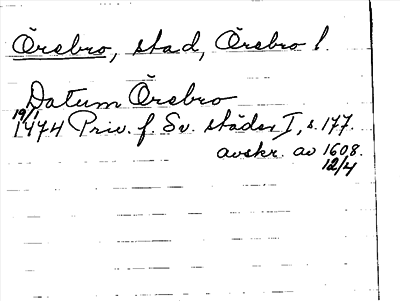 Örebro, stad, Örebro l.
Datum Örebro
19/1
1474 Priv. f. Sv. städer I, s. 177.
avskr. av 1608.
12/4